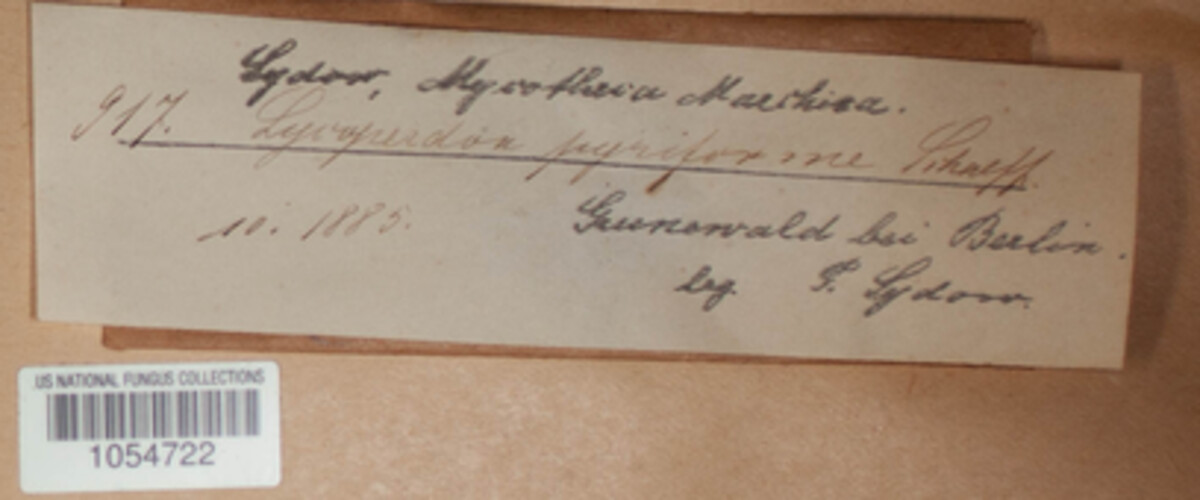 Sydow, Mycotheca Marchica.
917. Lycoperdon pyriforme Schaeff.
10. 1885.
Grunewald bei Berlin.
leg. P. Sydow.
US NATIONAL FUNGUS COLLECTIONS
1054722